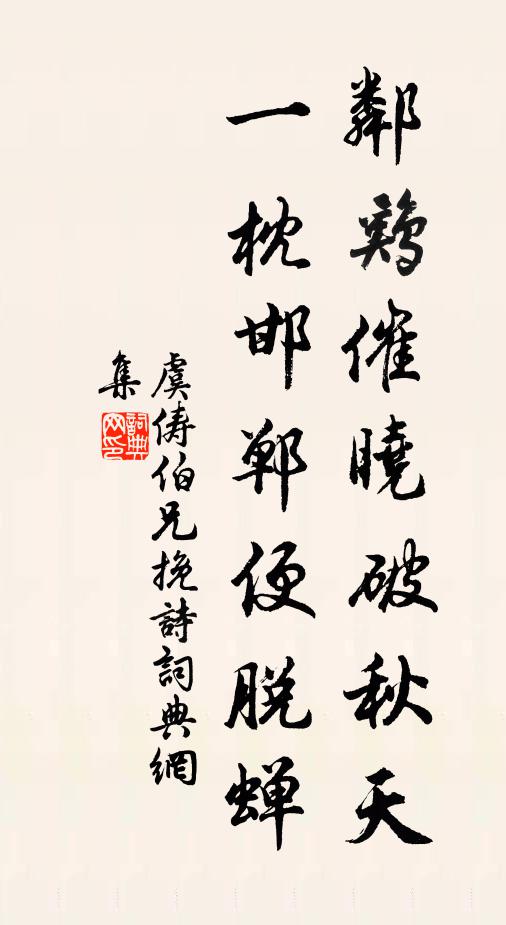 鄰鷄催曉破秋天
一枕邯鄲便脫蟬
虞儔伯兄挽詩詞典網
集
詞典网印